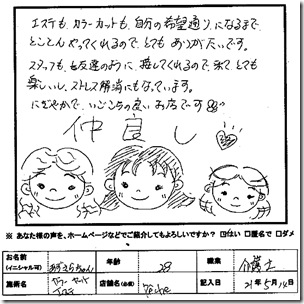 エステも、カラーカットも、自分の希望通りになるまで、
とことんやってくれるので、とても ありがたいです。
スタッフも、女友達のように、接してくれるので、来て、とても
楽しいし、ストレス解消にもなっています。
にぎやかで、いごこちの良いお店です
仲良し
※ あなた様の声を、ホームページなどでご紹介してもよろしいですか？ はい □匿名で □ダメ
お名前
(イニシャル可)
年齢
28
職業
介護士
施術名
カラー カット
エステ
店舗名(必須)
記入日
21年5月14日